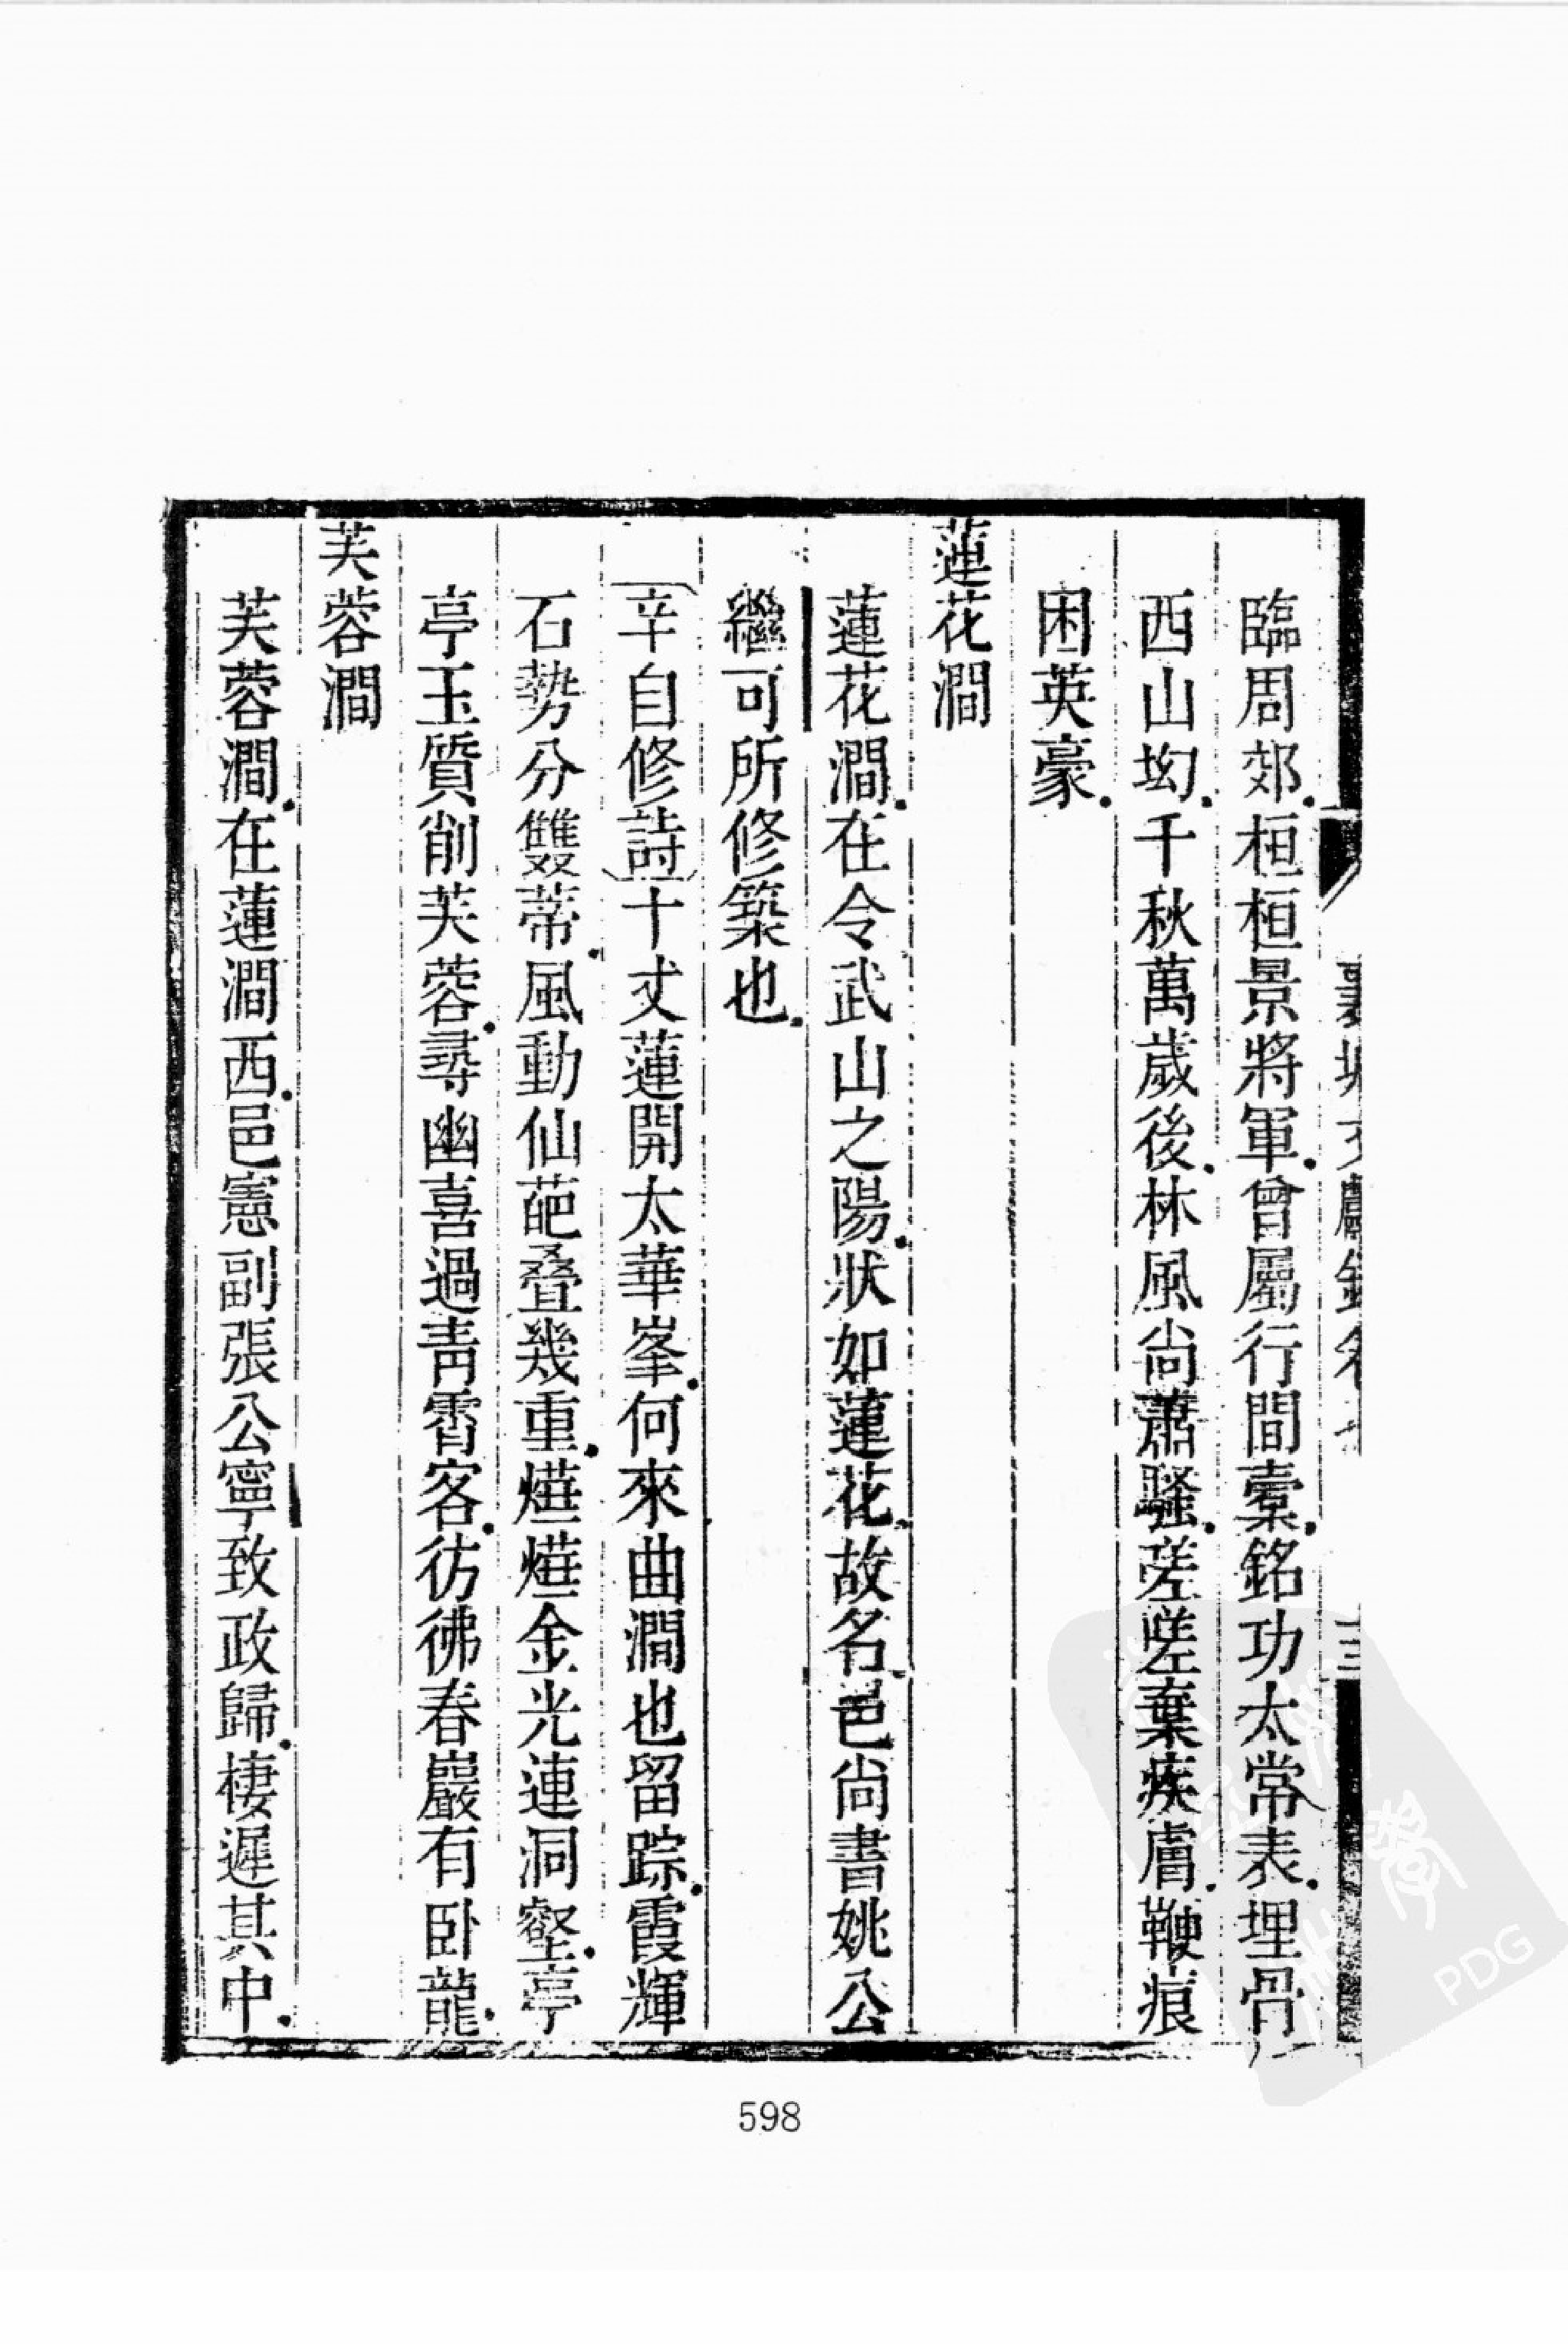 臨周郊桓桓景將軍曾屬行間櫜銘功太常表埋骨
西山坳千秋萬歲後林風尚蕭騷嗟嗟棄疾膚鞭痕
困英豪
蓮花澗
蓮花澗在令武山之陽狀如蓮花故名邑尚書姚公
繼可所修築也
辛自修詩十丈蓮開太華峯何來曲澗也留踪霞輝
石勢分雙蒂風動仙葩叠幾重燁燁金光連洞壑亭
亭玉質削芙蓉尋幽喜過青霄客彷彿春巖有卧龍
芙蓉澗
芙蓉澗在蓮澗西邑憲副張公寧致政歸棲遲其中
598
PDG